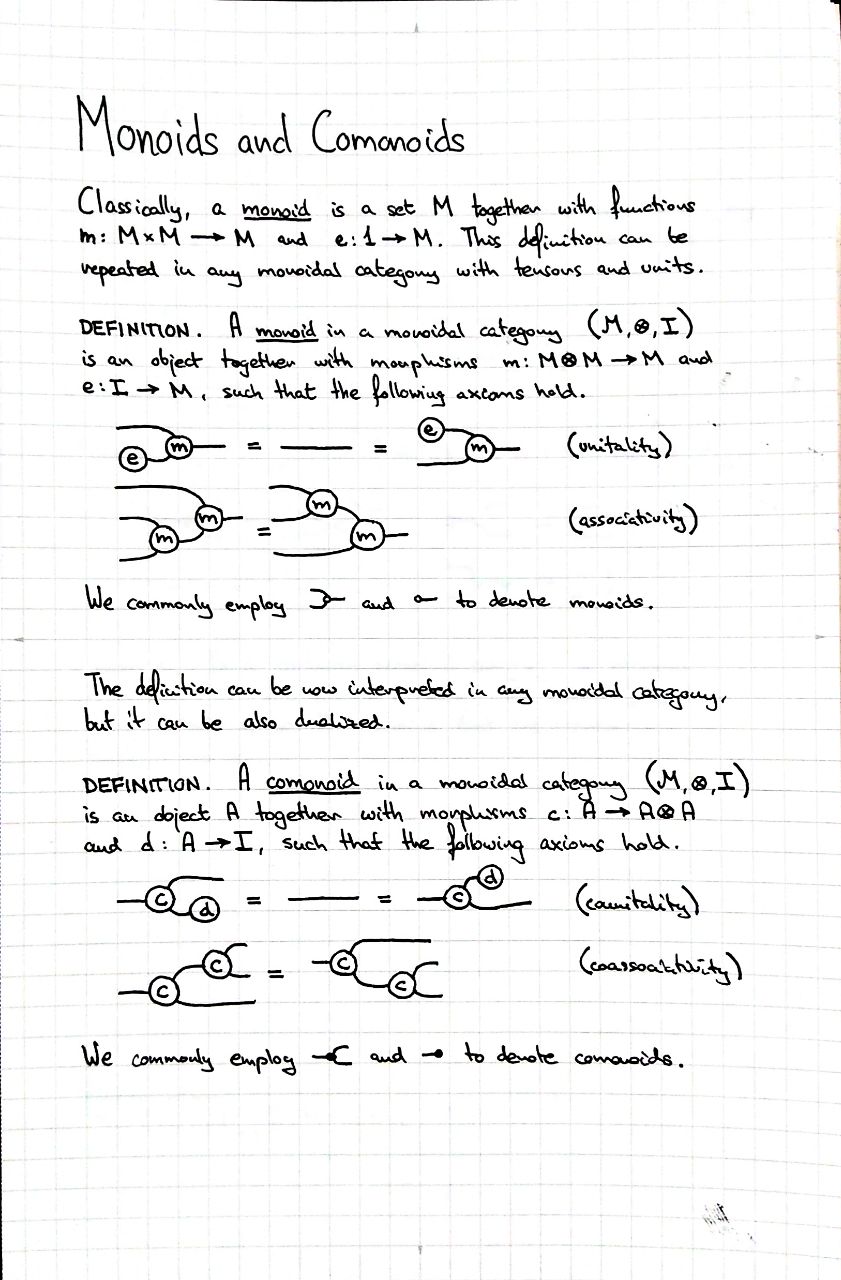 Monoids and Comonoids
Classically, a monoid is a set M together with functions
m: M×M → M and e: 1 → M. This definition can be
repeated in any monoidal category with tensors and units.
DEFINITION. A monoid in a monoidal category (M, ⊗, I)
is an object together with morphisms m: M⊗M → M and
e: I → M, such that the following axioms hold.
e m = = e m (unitality)
m m = m m (associativity)
We commonly employ and to denote monoids.
The definition can be now interpreted in any monoidal category,
but it can be also dualized.
DEFINITION. A comonoid in a monoidal category (M, ⊗, I)
is an object A together with morphisms c: A → A⊗A
and d: A → I, such that the following axioms hold.
c d = = c d (counitality)
c c = c c (coassociativity)
We commonly employ and to denote comonoids.